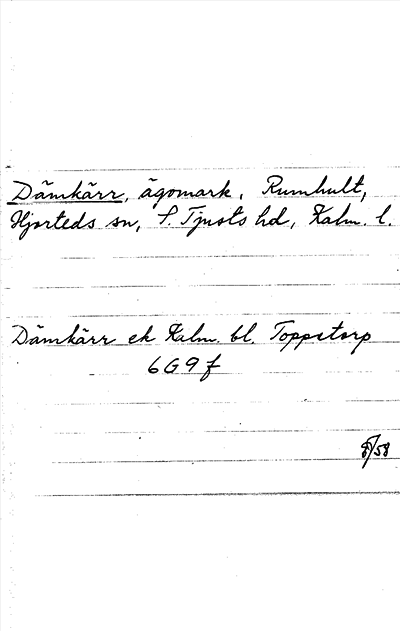 Dämkärr, ägomark, Rumhult,
Hjorteds sn, S. Tjusts hd, Kalm. l.
Dämkärr ek Kalm. bl. Toppetorp
6G9f
8/58